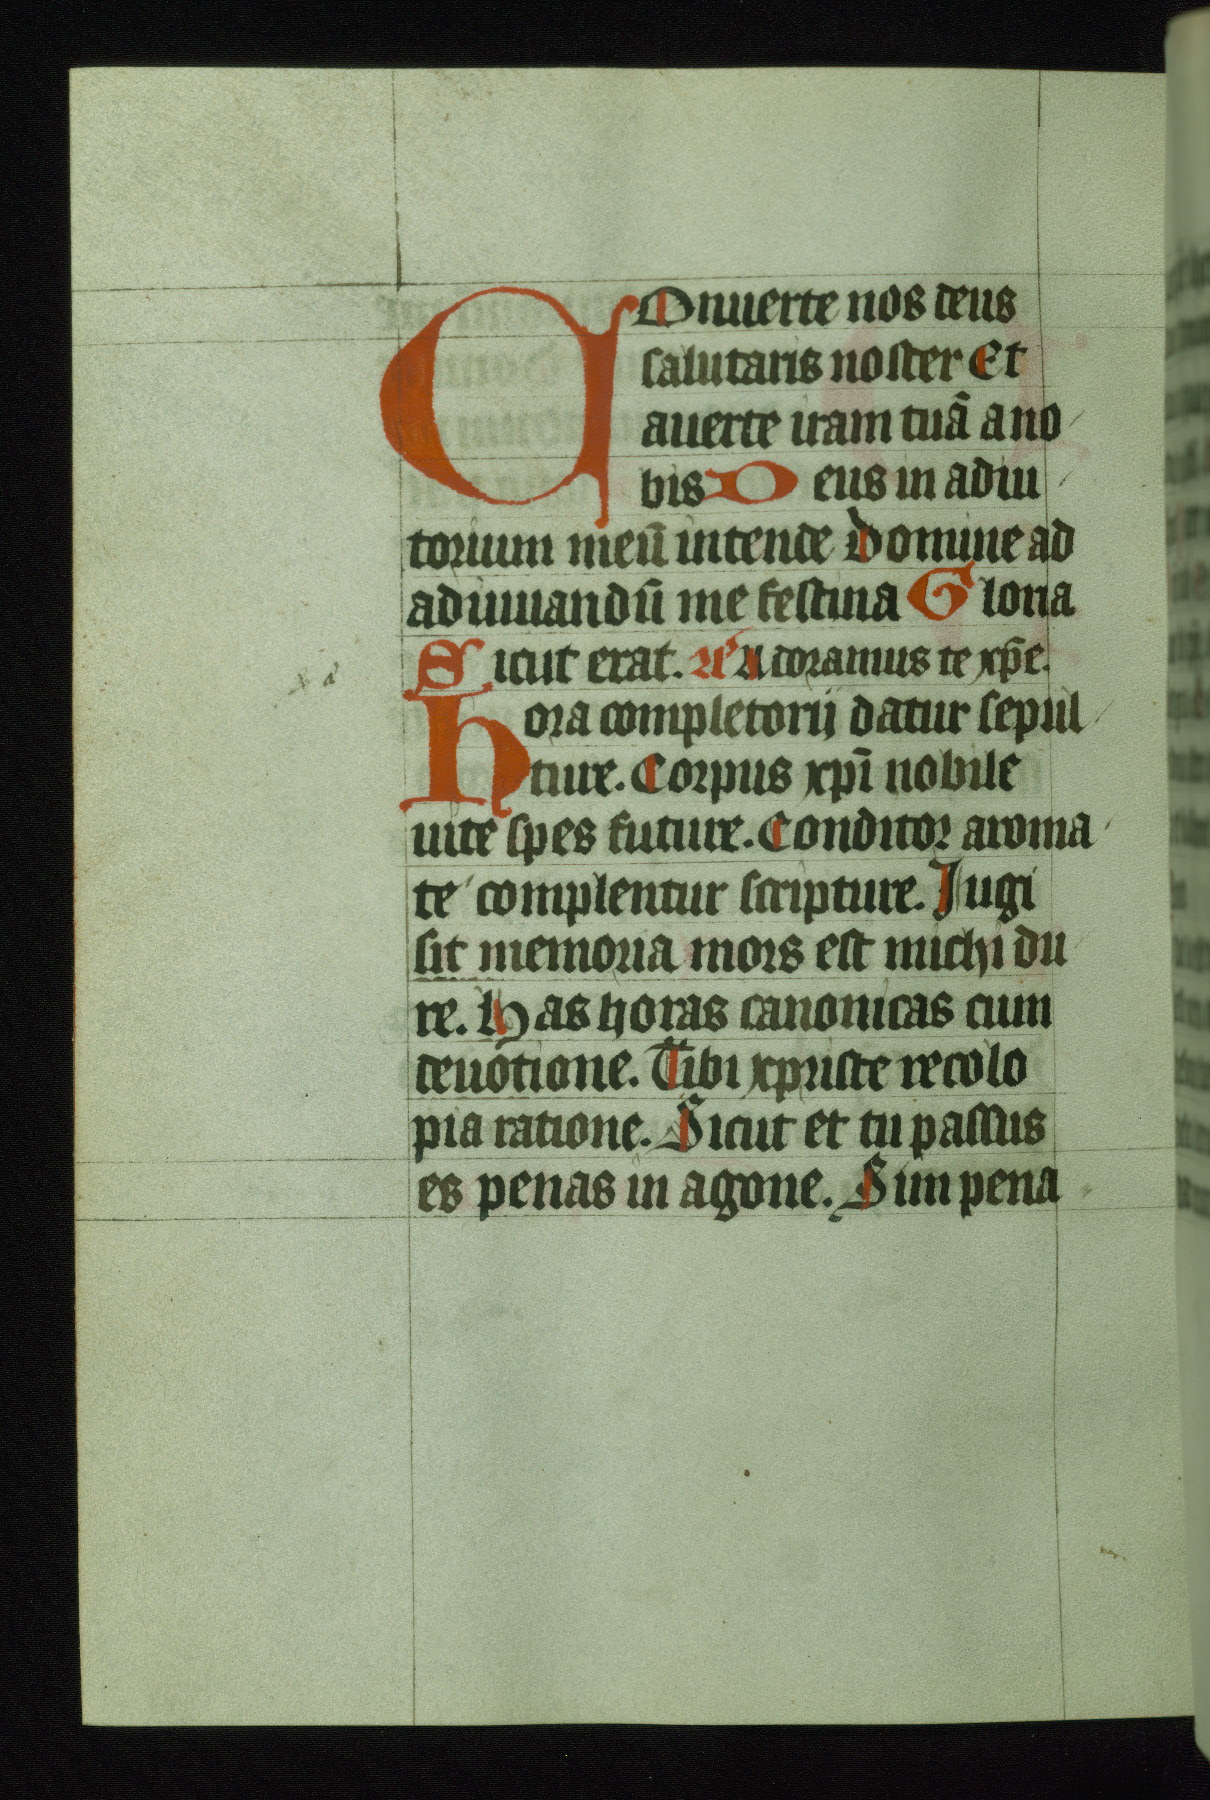 COnuerte nos deus
salutaris noster Et
auerte iram tuā a no
bis Deus in adiu
torium meū intende Domine ad
adiuuandū me festina Gloria
Sicut erat. Adoramus te xp̄e.
hora completorij datur sepul
ture. Corpus xpī nobile
uite spes future. Conditor aroma
te complentur scripture. Iugi
sit memoria mors est michi du
re. Has horas canonicas cum
deuotione. Tibi xpriste recolo
pia ratione. Sicut et tu passus
es penas in agone. Sim pena